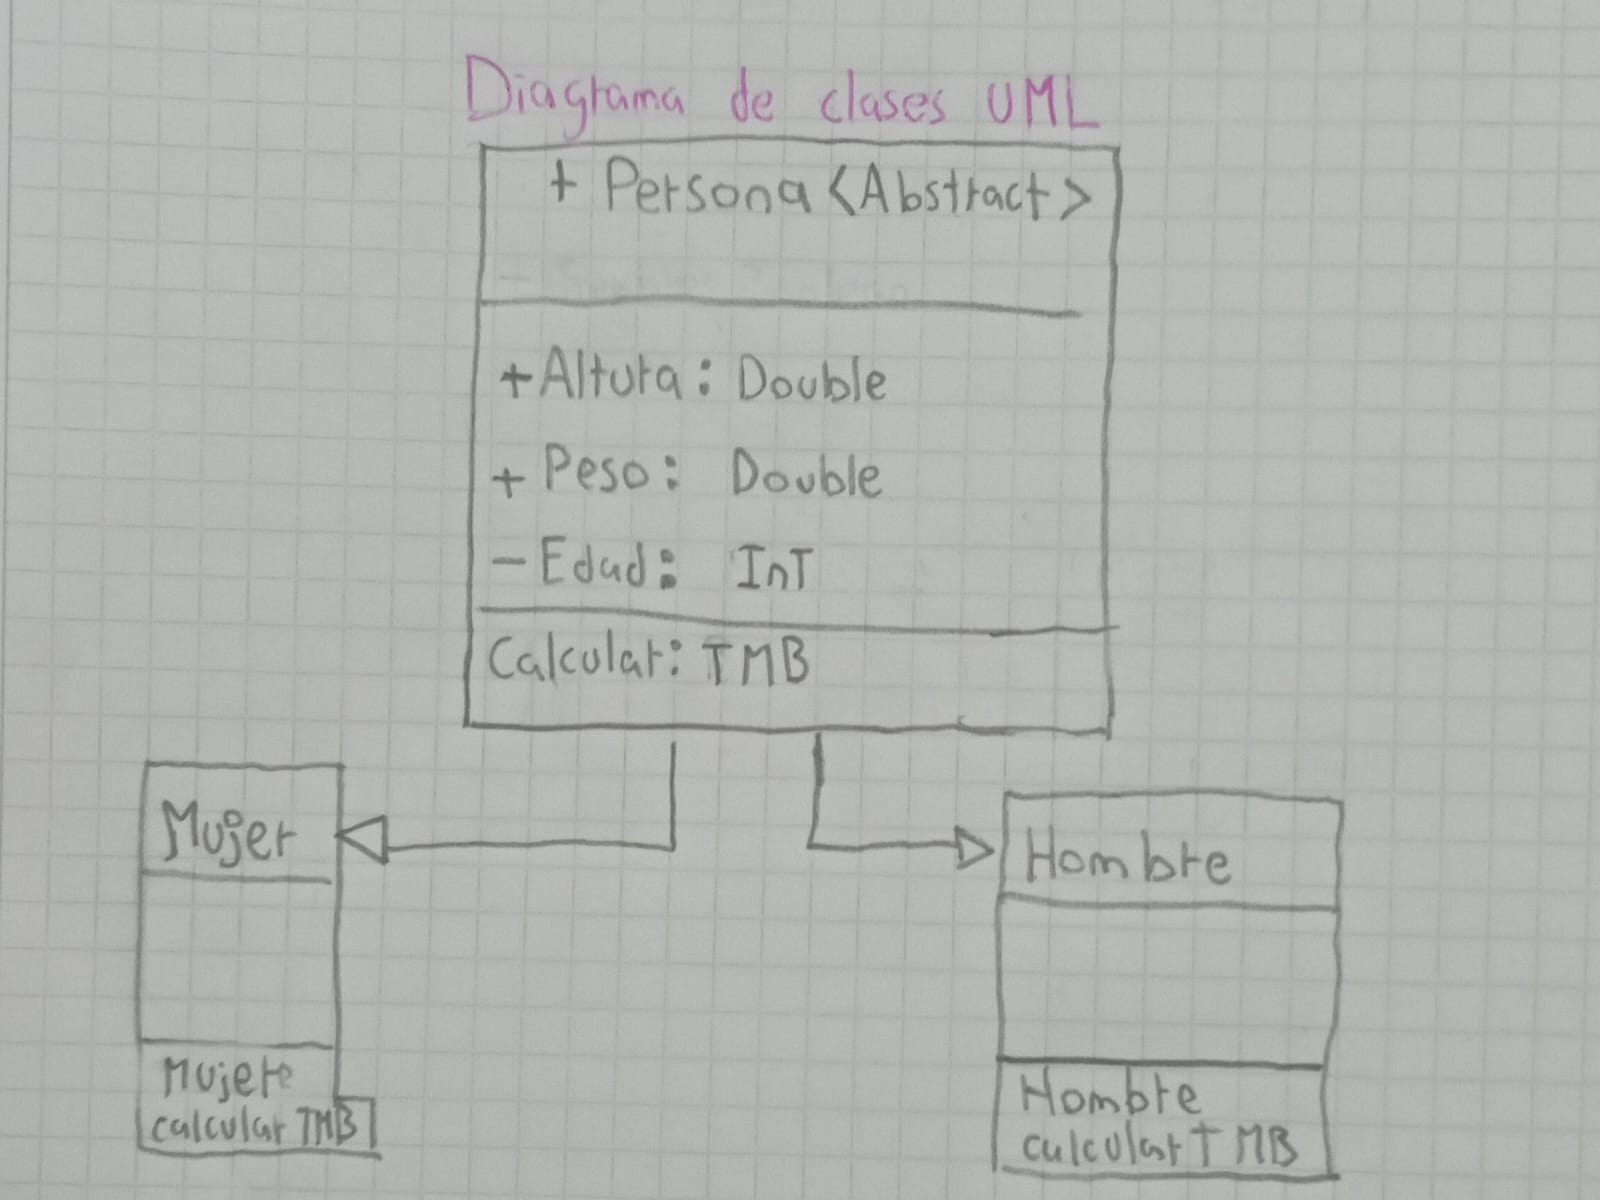 Diagrama de clases UML
+ Persona <Abstract>
+ Altura: Double
+ Peso: Double
- Edad: InT
Calcular: TMB
Mujer
Mujere
calcular TMB
Hombre
Hombre
calcular TMB